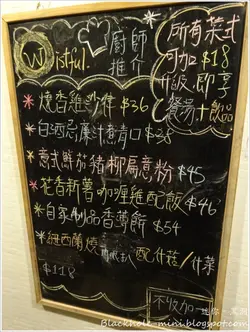 Wistful.
廚師
推介
所有菜式
可加$18
升級,即享
餐湯+飲品
煙香雞沙律 $36
白酒忌廉汁煮青口 $38
意式鮮茄豬柳扁意粉 $45
花香新薯咖喱雞配飯 $46
自家制品香薄餅 $54
紐西蘭燒
配什菇/什菜
$118
不收加一
Blackhole-mini.blogspot.com